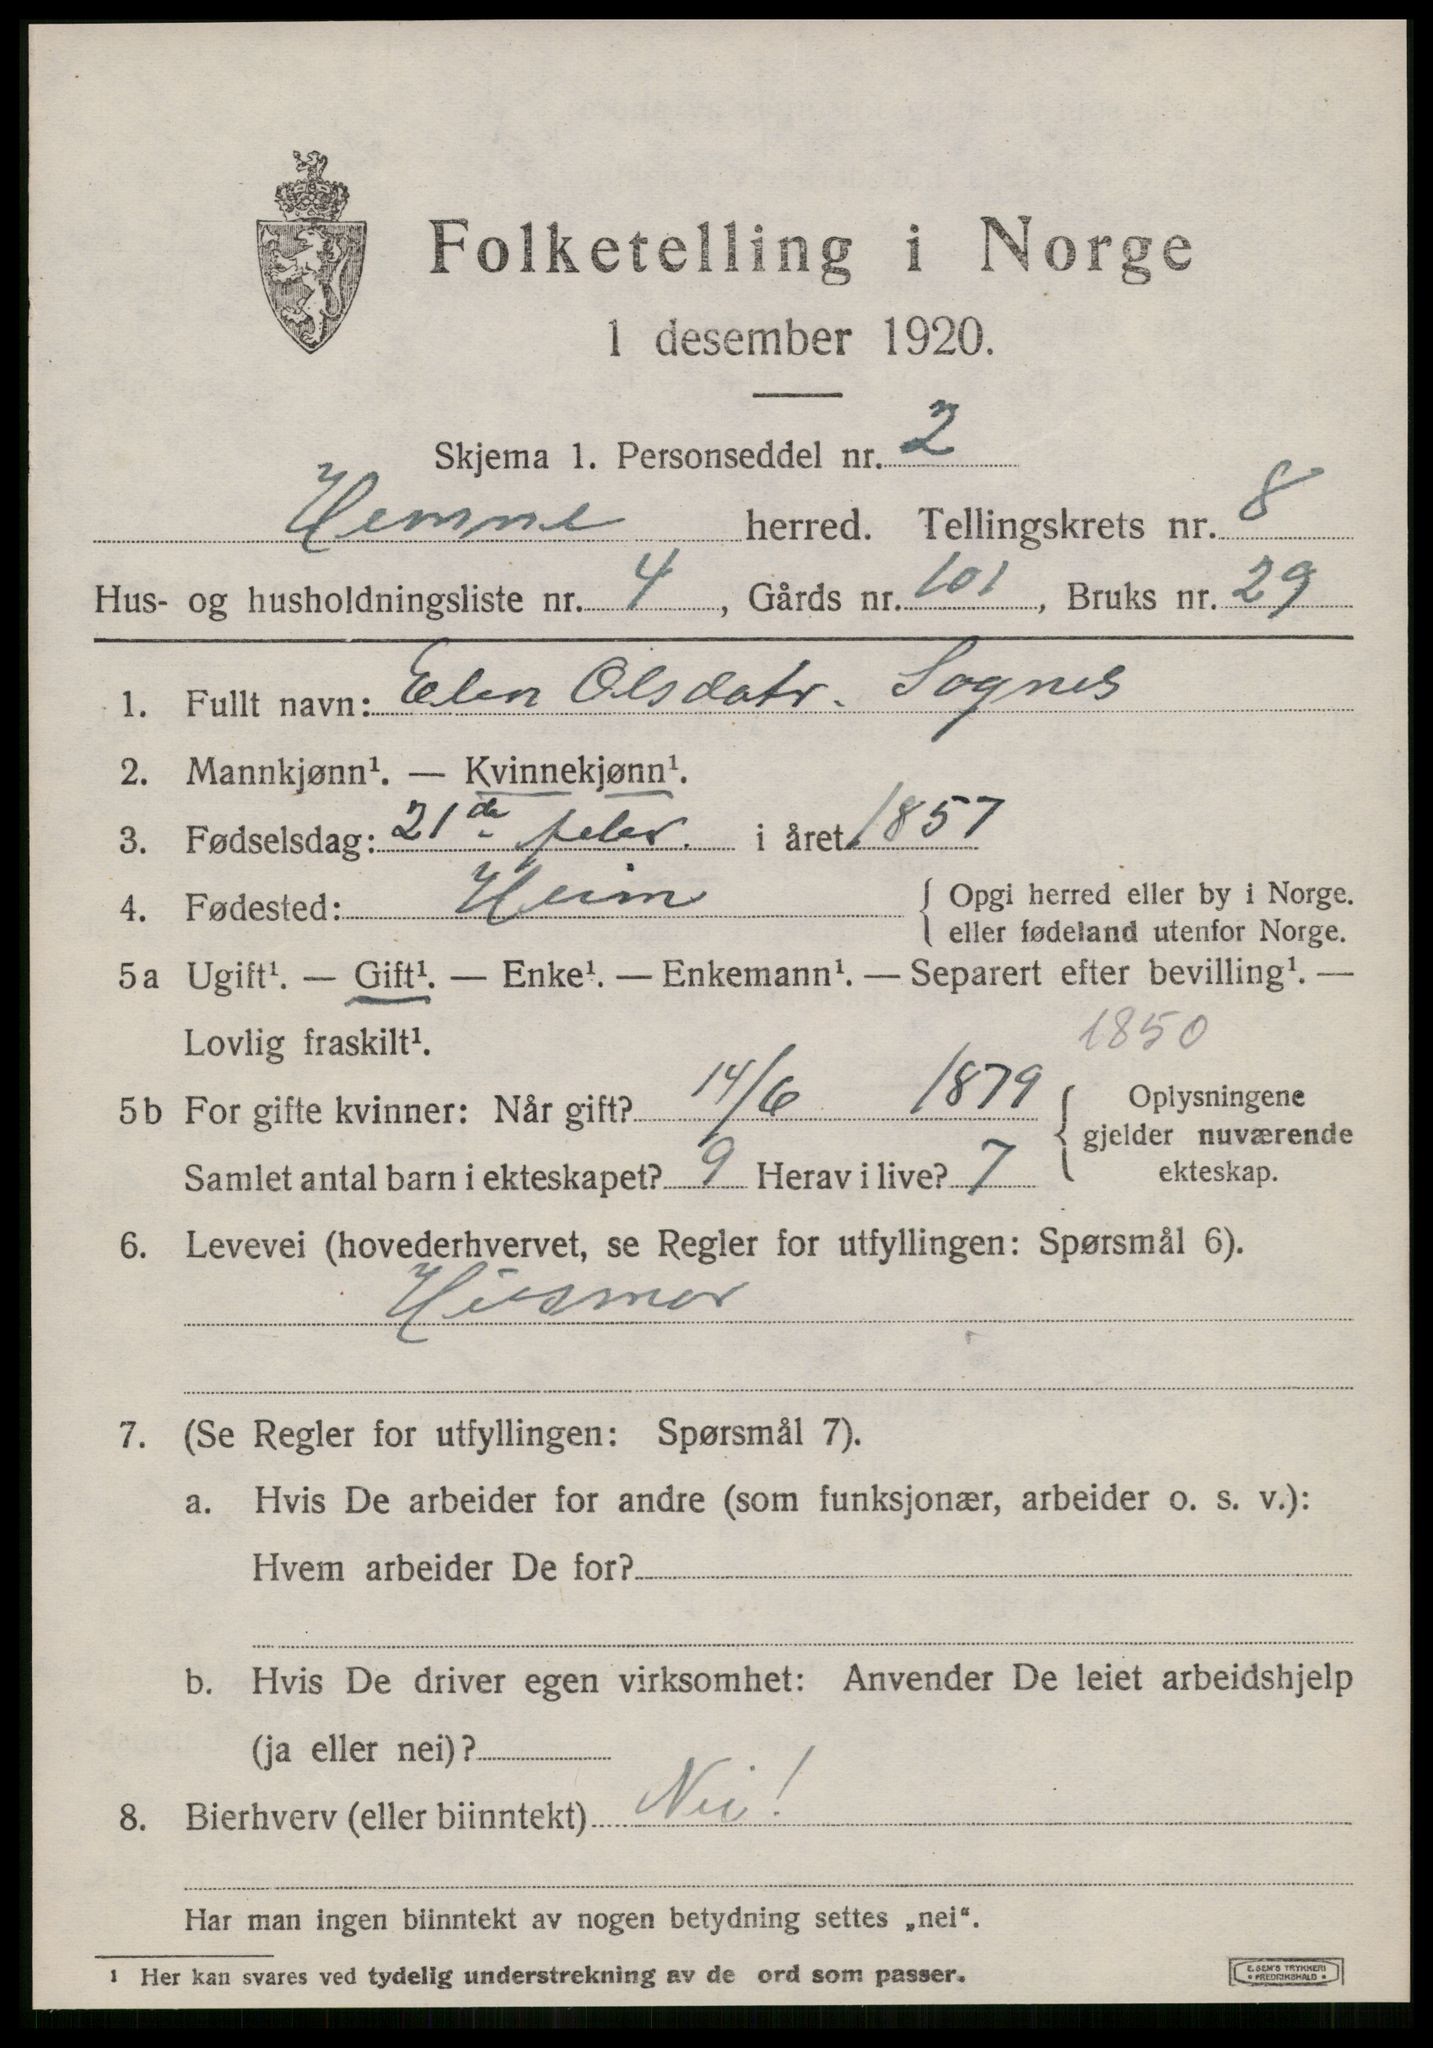 Folketelling i Norge
1 desember 1920.
Skjema 1. Personseddel nr. 2
Hemne herred. Tellingskrets nr. 8
Hus- og husholdningsliste nr. 4, Gårds nr. 101, Bruks nr. 29
1. Fullt navn: Elen Olsdatr. Sognes
2. Mannkjønn¹. — Kvinnekjønn¹.
3. Fødselsdag: 21de febr. i året 1857
4. Fødested: Heim { Opgi herred eller by i Norge.
eller fødeland utenfor Norge.
5a Ugift¹. — Gift¹. — Enke¹. — Enkemann¹. — Separert efter bevilling¹. —
Lovlig fraskilt¹.
1850
5b For gifte kvinner: Når gift? 14/6 1879 { Oplysningene
gjelder nuværende
ekteskap.
Samlet antal barn i ekteskapet? 9 Herav i live? 7
6. Levevei (hovederhvervet, se Regler for utfyllingen: Spørsmål 6).
Husmor
7. (Se Regler for utfyllingen: Spørsmål 7).
a. Hvis De arbeider for andre (som funksjonær, arbeider o. s. v.):
Hvem arbeider De for?
b. Hvis De driver egen virksomhet: Anvender De leiet arbeidshjelp
(ja eller nei)?
8. Bierhverv (eller biinntekt) Nei!
Har man ingen biinntekt av nogen betydning settes „nei“.
¹ Her kan svares ved tydelig understrekning av de ord som passer.
E. SEM'S TRYKKERI
• FREDRIKSHALD •